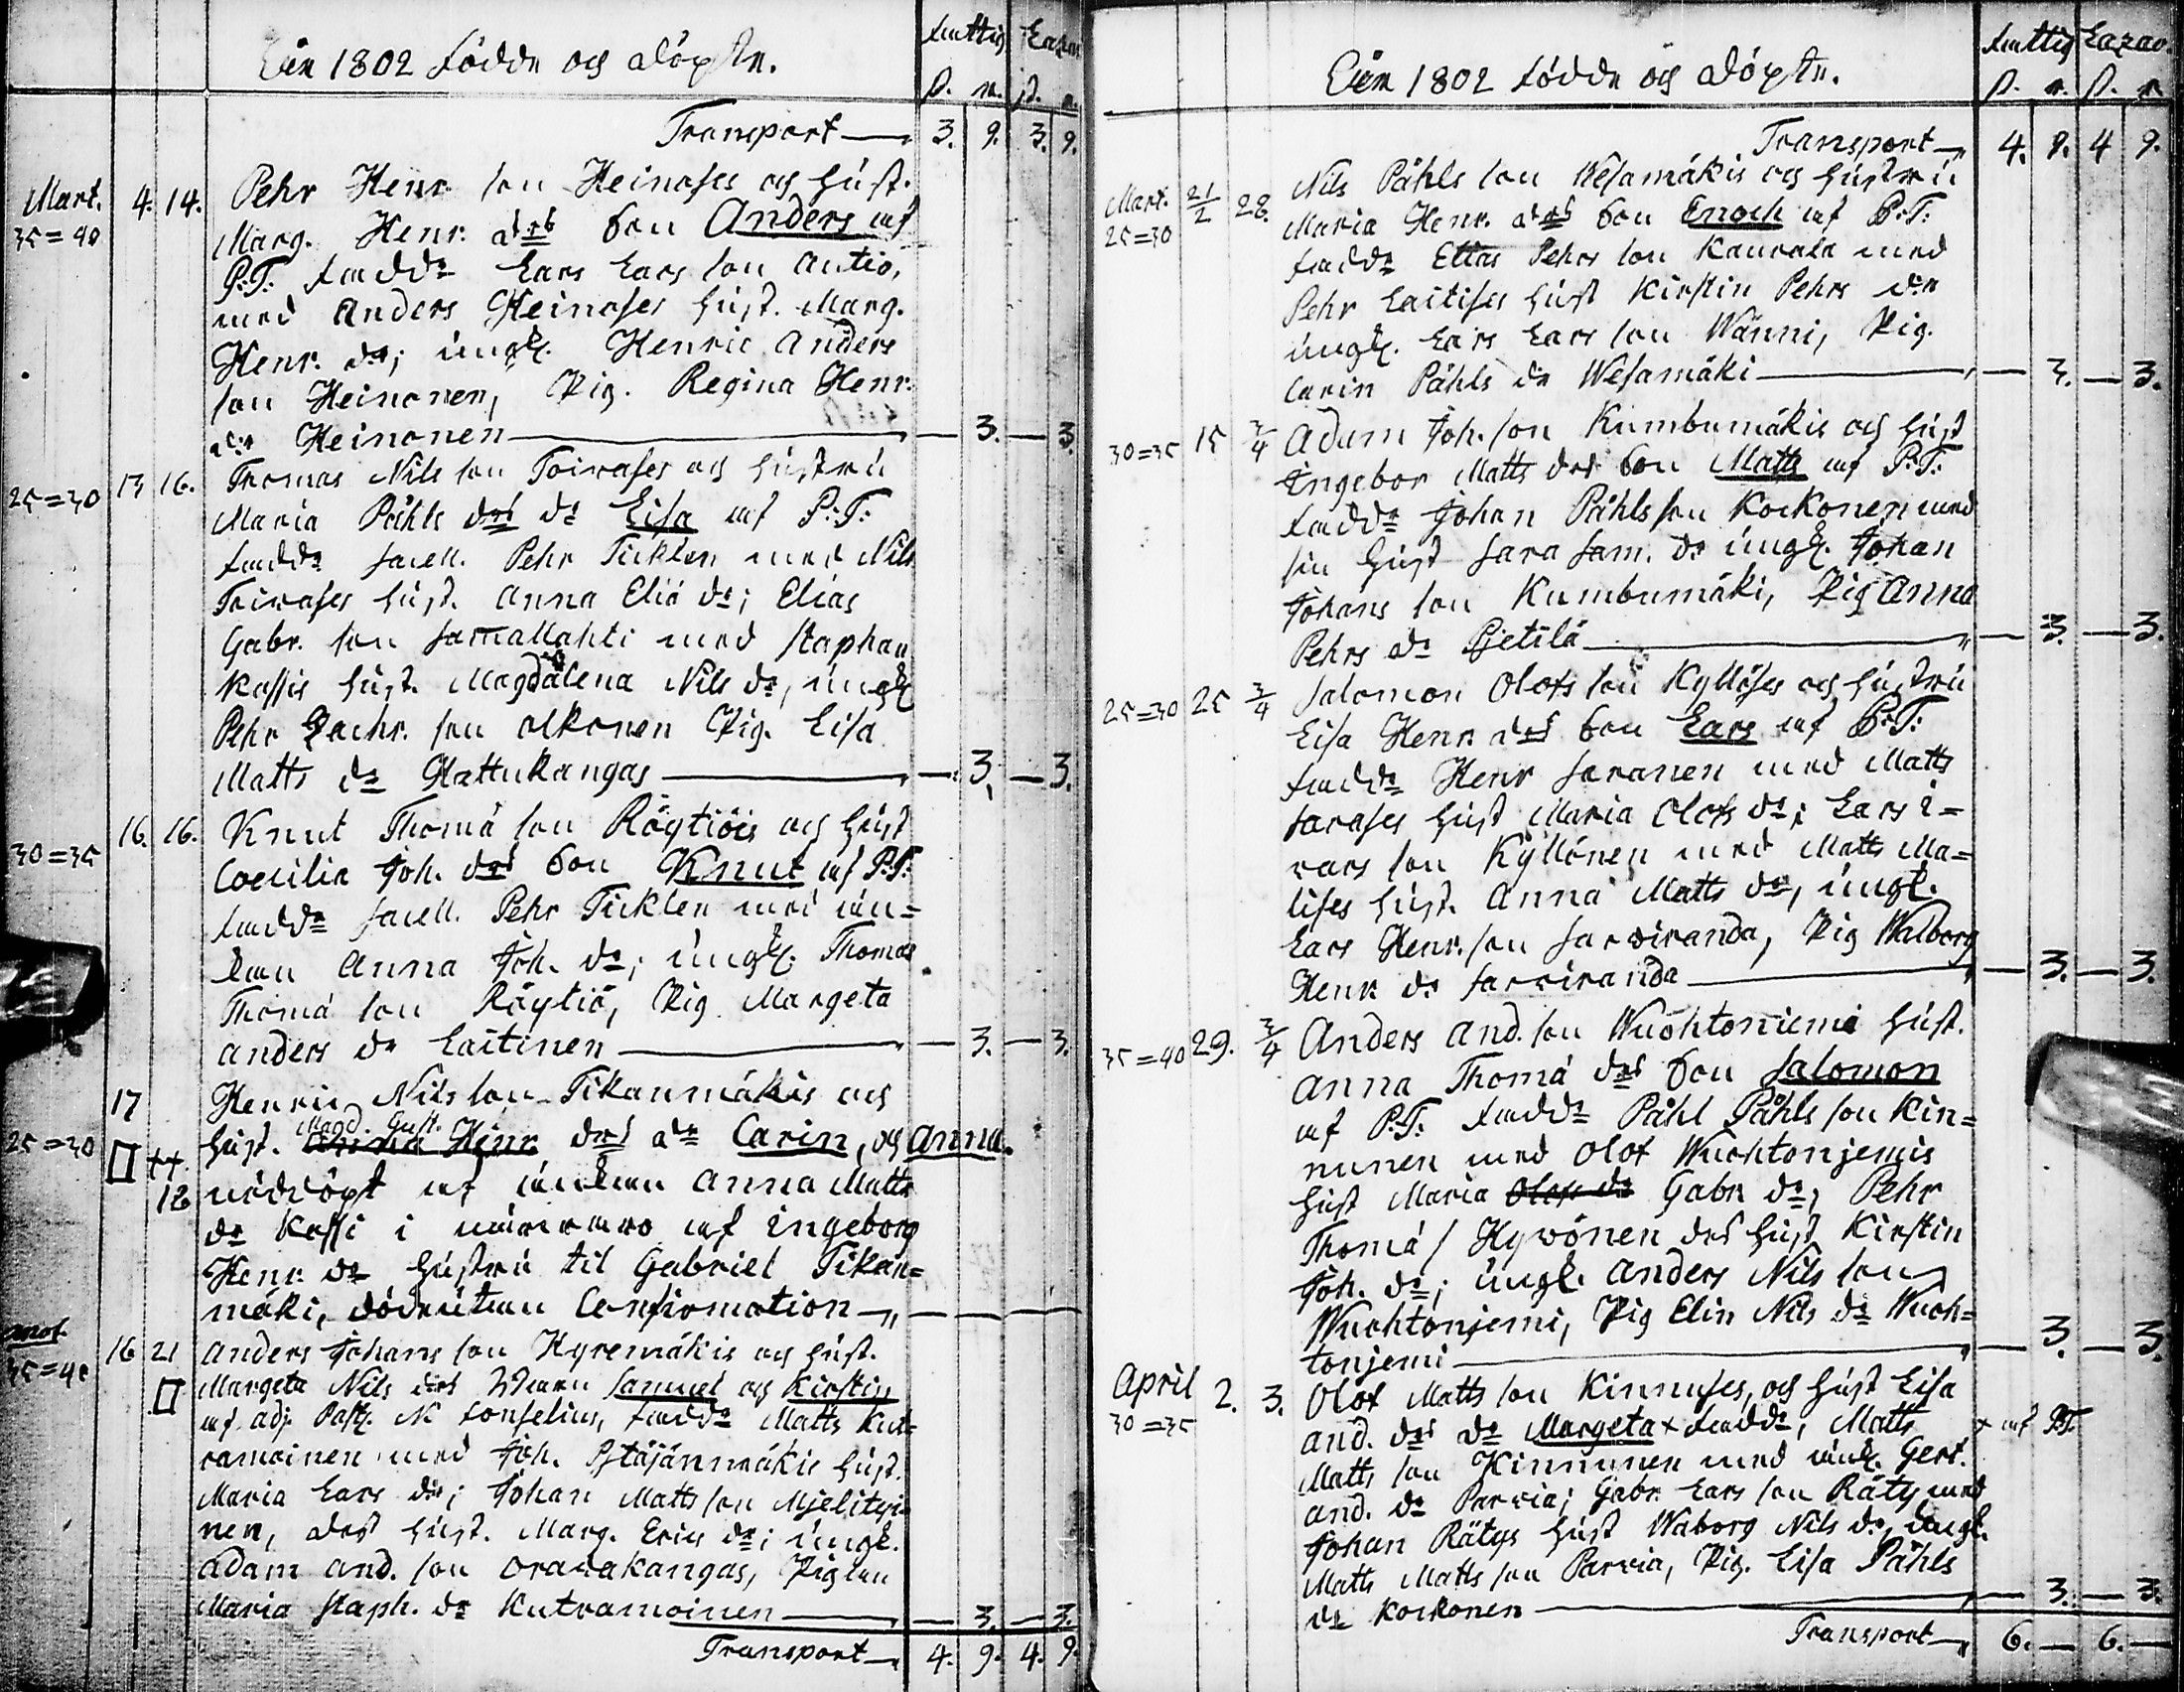 fattig Lazar.
År 1802 födde och döpte.
ß. r. ß. r.
Transport 3. 9. 3. 9.
Mart. 4. 14. Pehr Henr. son Heinoses och hust.
35=40 Marg. Henr. drs son Anders af
P:T: fadd: Lars Lars son Autio,
med Anders Heinoses hust. Marg.
Henr. dr; ungk. Henric Anders
son Heinonen, Pig. Regina Henr.
dr Heinonen — 3. — 3.
13 16. Thomas Nils son Toivases och hustru
25=30 Maria Påhls drs dr Lisa af P:T:
fadd: Pehr Ticklen med Nils
Toivases hust. Anna Eliæ dr; Elias
Gabr. son Samallahti med Staphan
Kassis hust. Magdalena Nils dr, ungk
Pehr Zachr. son Alkonen Pig. Lisa
Matts dr Hattukangas — 3. — 3.
16. 16. Knut Thomæ son Röytiöis och hust
30=35 Coecilia Joh. drs son Knut af P:T:
fadd: Pehr Ticklen med än=
kan Anna Joh. dr; ungk. Thomas
Thomæ son Röytiö, Pig Margeta
Anders dr Laitinen — 3. — 3.
17 Henric Nils son Tikanmäkis och
Magd. Gust.
25=30 hust. Anna Henr. drs dr Carin, och Anna.
††
12 nöddöpt af änkan Anna Matts
dr Kassi i närvaro af Ingeborg
Henr. dr hustru til Gabriel Tikan=
mäki, död utan Confirmation — — —
16 21 Anders Johans son Hyremäkis och hust.
35=40 Margeta Nils drs Samuel och Kirstin
af adj. Past. N. Fonselius, fadd: Matts Kut=
ramoinen med Joh. Ptäjänmäkis hust.
Maria Lars dr; Johan Matts son Mjelityi=
nen, des hust. Marg. Erics dr; ungk.
Adam And. son Oravakangas, Pigan
Maria Staph. dr Kutramoinen — 3. — 3.
Transport 4. 9. 4. 9.
fattig Lazar.
År 1802 födde och döpte.
ß. r. ß. r.
Transport 4. 9. 4 9.
Mart. 21/2 28. Nils Påhls son Wesamäkis och hustru
25=30 Maria Henr. drs son Enoch af P:T:
fadd: Elias Pehrs son Kaurala med
Pehr Laitises hust Kirstin Pehrs dr
ungk. Lars Lars son Wänni, Pig.
Carin Påhls dr Wesamäki — 3. — 3.
30=35 15 3/4 Adam Joh. son Kumbumäkis och hust
Ingebor Matts drs son Matts af P:T:
fadd: Johan Påhls son Korkonen med
sin hust Sara Sam. dr ungk. Johan
Johans son Kumbumäki, Pig Anna
Pehrs dr Pjetilä — 3. — 3.
25=30 25 3/4 Salomon Olofs son Kyllöses och hustru
Lisa Henr. drs son Lars af P:T:
fadd: Henr Saranen med Matts
Sarases hust Maria Olofs dr; Lars I=
vars son Kyllönen med Matts Ma=
lises hust. Anna Matts dr, ungk.
Lars Henr. son Sarviranda, Pig Walborg
Henr. dr Sarviranda — 3. — 3.
35=40 29. 3/4 Anders And. son Wuohtoniemi hust.
Anna Thomæ drs son Salomon
af P:T: fadd: Påhl Påhls son Kin=
nunen med Olof Wuohtonjemis
hust Maria Olofs dr Gabr. dr; Pehr
Thomæ s Hyvönen des hust Kirstin
Joh. dr; ungk. Anders Nils son
Wuohtonjemi, Pig Elin Nils dr Wuoh=
tonjemi — 3. — 3.
April 2. 3. Olof Matts son Kinnuses, och hust Lisa
30=35 And. drs dr Margeta × fadd:, Matts × af P:T.
Matts son Kinnunen med änk. Gert.
And. dr Parvia; Gabr. Lars son Räty med
Johan Rätys hust Waborg Nils dr, ungk.
Matts Matts son Parvia, Pig. Lisa Påhls
dr Korkonen — 3. — 3.
Transport 6. — 6. —